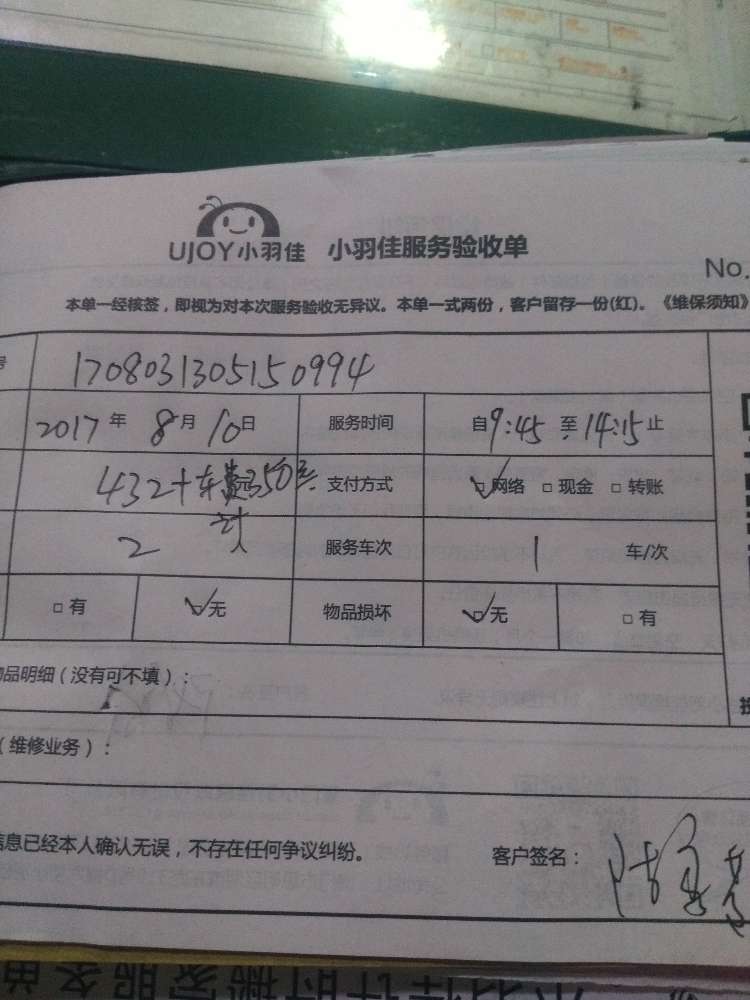 UJOY小羽佳 小羽佳服务验收单
No.
本单一经核签，即视为对本次服务验收无异议。本单一式两份，客户留存一份(红)。《维保须知》
号 1708031305150994
2017年8月10日 服务时间 自9:45至14:15止
432+车费350元 支付方式 □网络 □现金 □转账
2人 服务车次 1车/次
□有 □无 物品损坏 □无 □有
物品明细（没有可不填）：
（维修业务）：
信息已经本人确认无误，不存在任何争议纠纷。 客户签名：